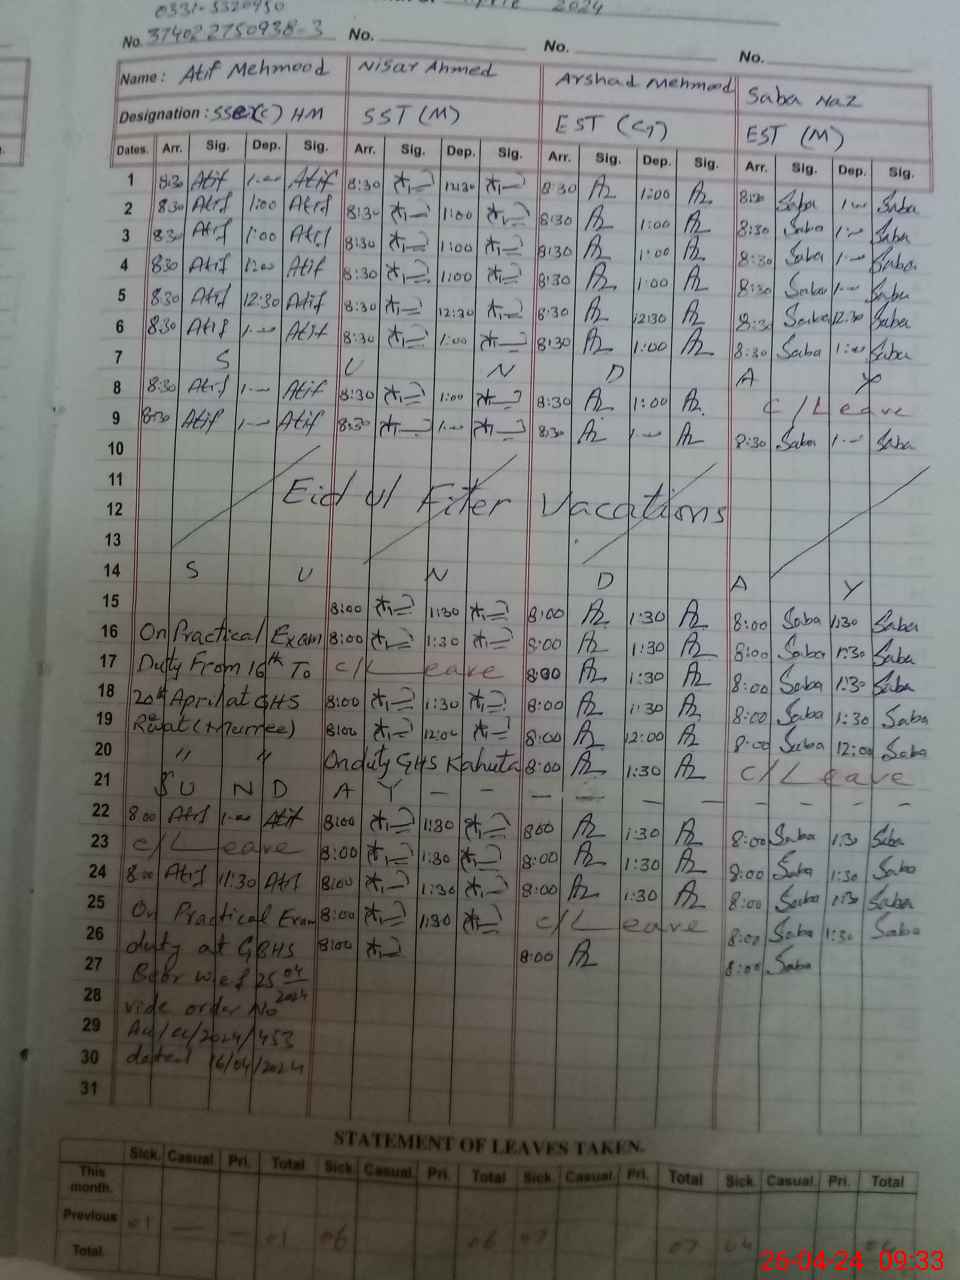 0331-5320950
2024
No. 374022750938-3 No. No. No.
Name: Atif Mehmood Nisar Ahmed Arshad Mehmood Saba Naz
Designation: HM SST (M) EST (CT) EST (M)
Dates. Arr. Sig. Dep. Sig. Arr. Sig. Dep. Sig. Arr. Sig. Dep. Sig. Arr. Sig. Dep. Sig.
1 8:30 Atif 1:00 Atif 8:30 12:30 8:30 1:00 8:30 Saba 1:00 Saba
2 8:30 Atif 1:00 Atif 8:30 1:00 8:30 1:00 8:30 Saba 1:00 Saba
3 8:30 Atif 1:00 Atif 8:30 1:00 8:30 1:00 8:30 Saba 1:00 Saba
4 8:30 Atif Atif 8:30 1:00 8:30 1:00 8:30 Saba 1:00 Saba
5 8:30 Atif 12:30 Atif 8:30 12:30 8:30 12:30 8:30 Saba 12:30 Saba
6 8:30 Atif 1:00 Atif 8:30 1:00 8:30 1:00 8:30 Saba 1:00 Saba
7 S U N D A Y
8 8:30 Atif 1:00 Atif 8:30 1:00 8:30 1:00 C/Leave
9 8:30 Atif 1:00 Atif 8:30 1:00 8:30 1:00 8:30 Saba 1:00 Saba
10
11
12 Eid ul Fiter Vacations
13
14 S U N D A Y
15 8:00 1:30 8:00 1:30 8:00 Saba 1:30 Saba
16 On Practical Exam 8:00 1:30 8:00 1:30 8:00 Saba 1:30 Saba
17 Duty From 16th To C/Leave 8:00 1:30 8:00 Saba 1:30 Saba
18 20th April at GHS 8:00 1:30 8:00 1:30 8:00 Saba 1:30 Saba
19 Rewat (Murree) 8:00 12:00 8:00 12:00 8:00 Saba 12:00 Saba
20 " " On duty GHS Kahuta 8:00 1:30 C/Leave
21 S U N D A Y - - - - - - - - - -
22 8:00 Atif 1:00 Atif 8:00 1:30 8:00 1:30 8:00 Saba 1:30 Saba
23 C/Leave 8:00 1:30 8:00 1:30 8:00 Saba 1:30 Saba
24 8:00 Atif 11:30 Atif 8:00 1:30 8:00 1:30 8:00 Saba 1:30 Saba
25 On Practical Exam 8:00 1:30 C/Leave 8:00 Saba 1:30 Saba
26 duty at GBHS 8:00 8:00 8:00 Saba
27 Beor w.e.f 25 04 2024
28 vide order No
29 /2024/453
30 dated 16/04/2024
31
STATEMENT OF LEAVES TAKEN.
Sick. Casual. Pri. Total Sick. Casual. Pri. Total Sick. Casual. Pri. Total Sick. Casual. Pri. Total
This month.
Previous
01 06 06 07 07 04
Total.
26-04-24 09:33